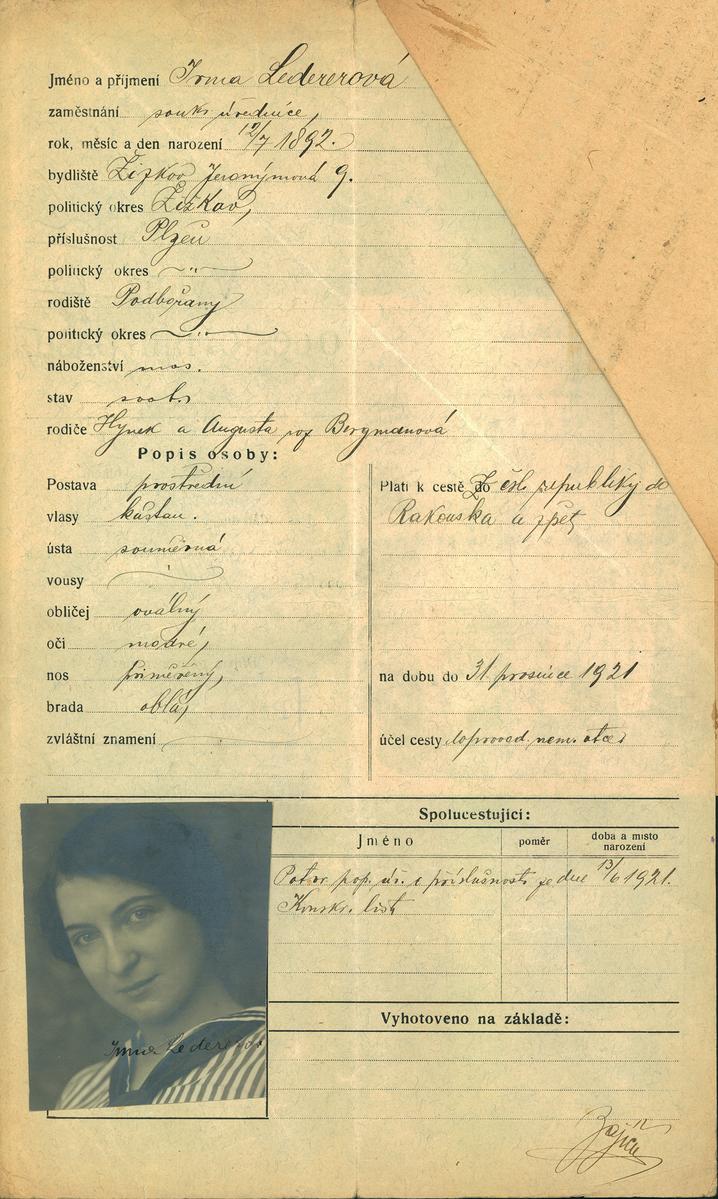 Jméno a příjmení Irma Ledererová
zaměstnání soukr. úřednice,
rok, měsíc a den narození 12/7 1892.
bydliště Žižkov Jeronýmová 9.
politický okres Žižkov,
příslušnost Plzeň
politický okres — " —
rodiště Podbořany
politický okres — " —
náboženství mos.
stav svob.
rodiče Hynek a Augusta roz Bergmanová
Popis osoby:
Postava prostřední
vlasy kaštan.
ústa souměrná
vousy
obličej oválný
oči modré,
nos přiměřený,
brada oblá,
zvláštní znamení
Platí k cestě do Z čsl. republiky do
Rakouska a zpět
na dobu do 31 prosince 1921
účel cesty doprovod. nem. otce
Spolucestující:
Jméno poměr doba a místo narození
Potvr. pop. úř. o příslušnosti ze dne 13/6 1921.
Konskr. list
Vyhotoveno na základě:
Irma Ledererová